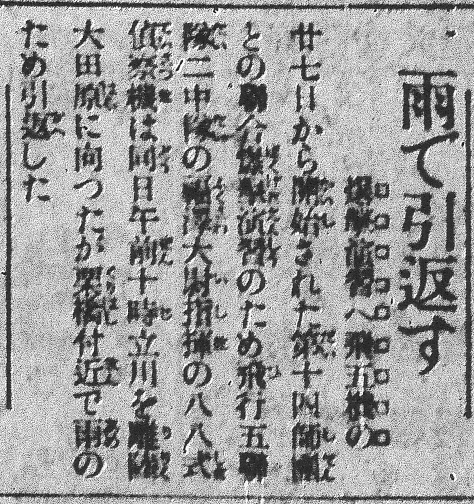 雨で引返す
爆撃演習へ飛五機の
廿七日から開始された第十四師團
との聯合爆撃演習のため飛行五聯
隊二中隊の福澤大尉指揮の八八式
偵察機は同日午前十時立川を離陸
大田原に向つたが栗橋付近で雨の
ため引返した